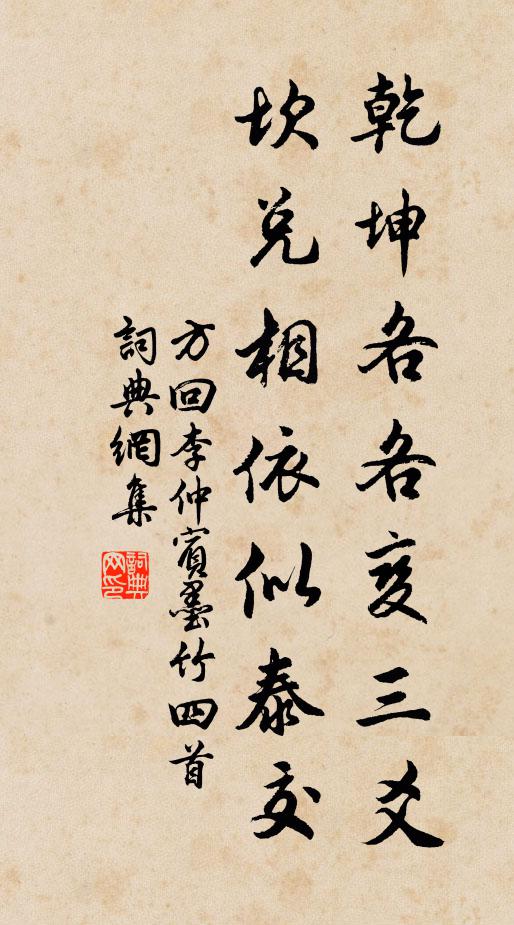 乾坤各各变三爻
坎兑相依似泰交
方回李仲賓墨竹四首
詞典網集
詞典网印